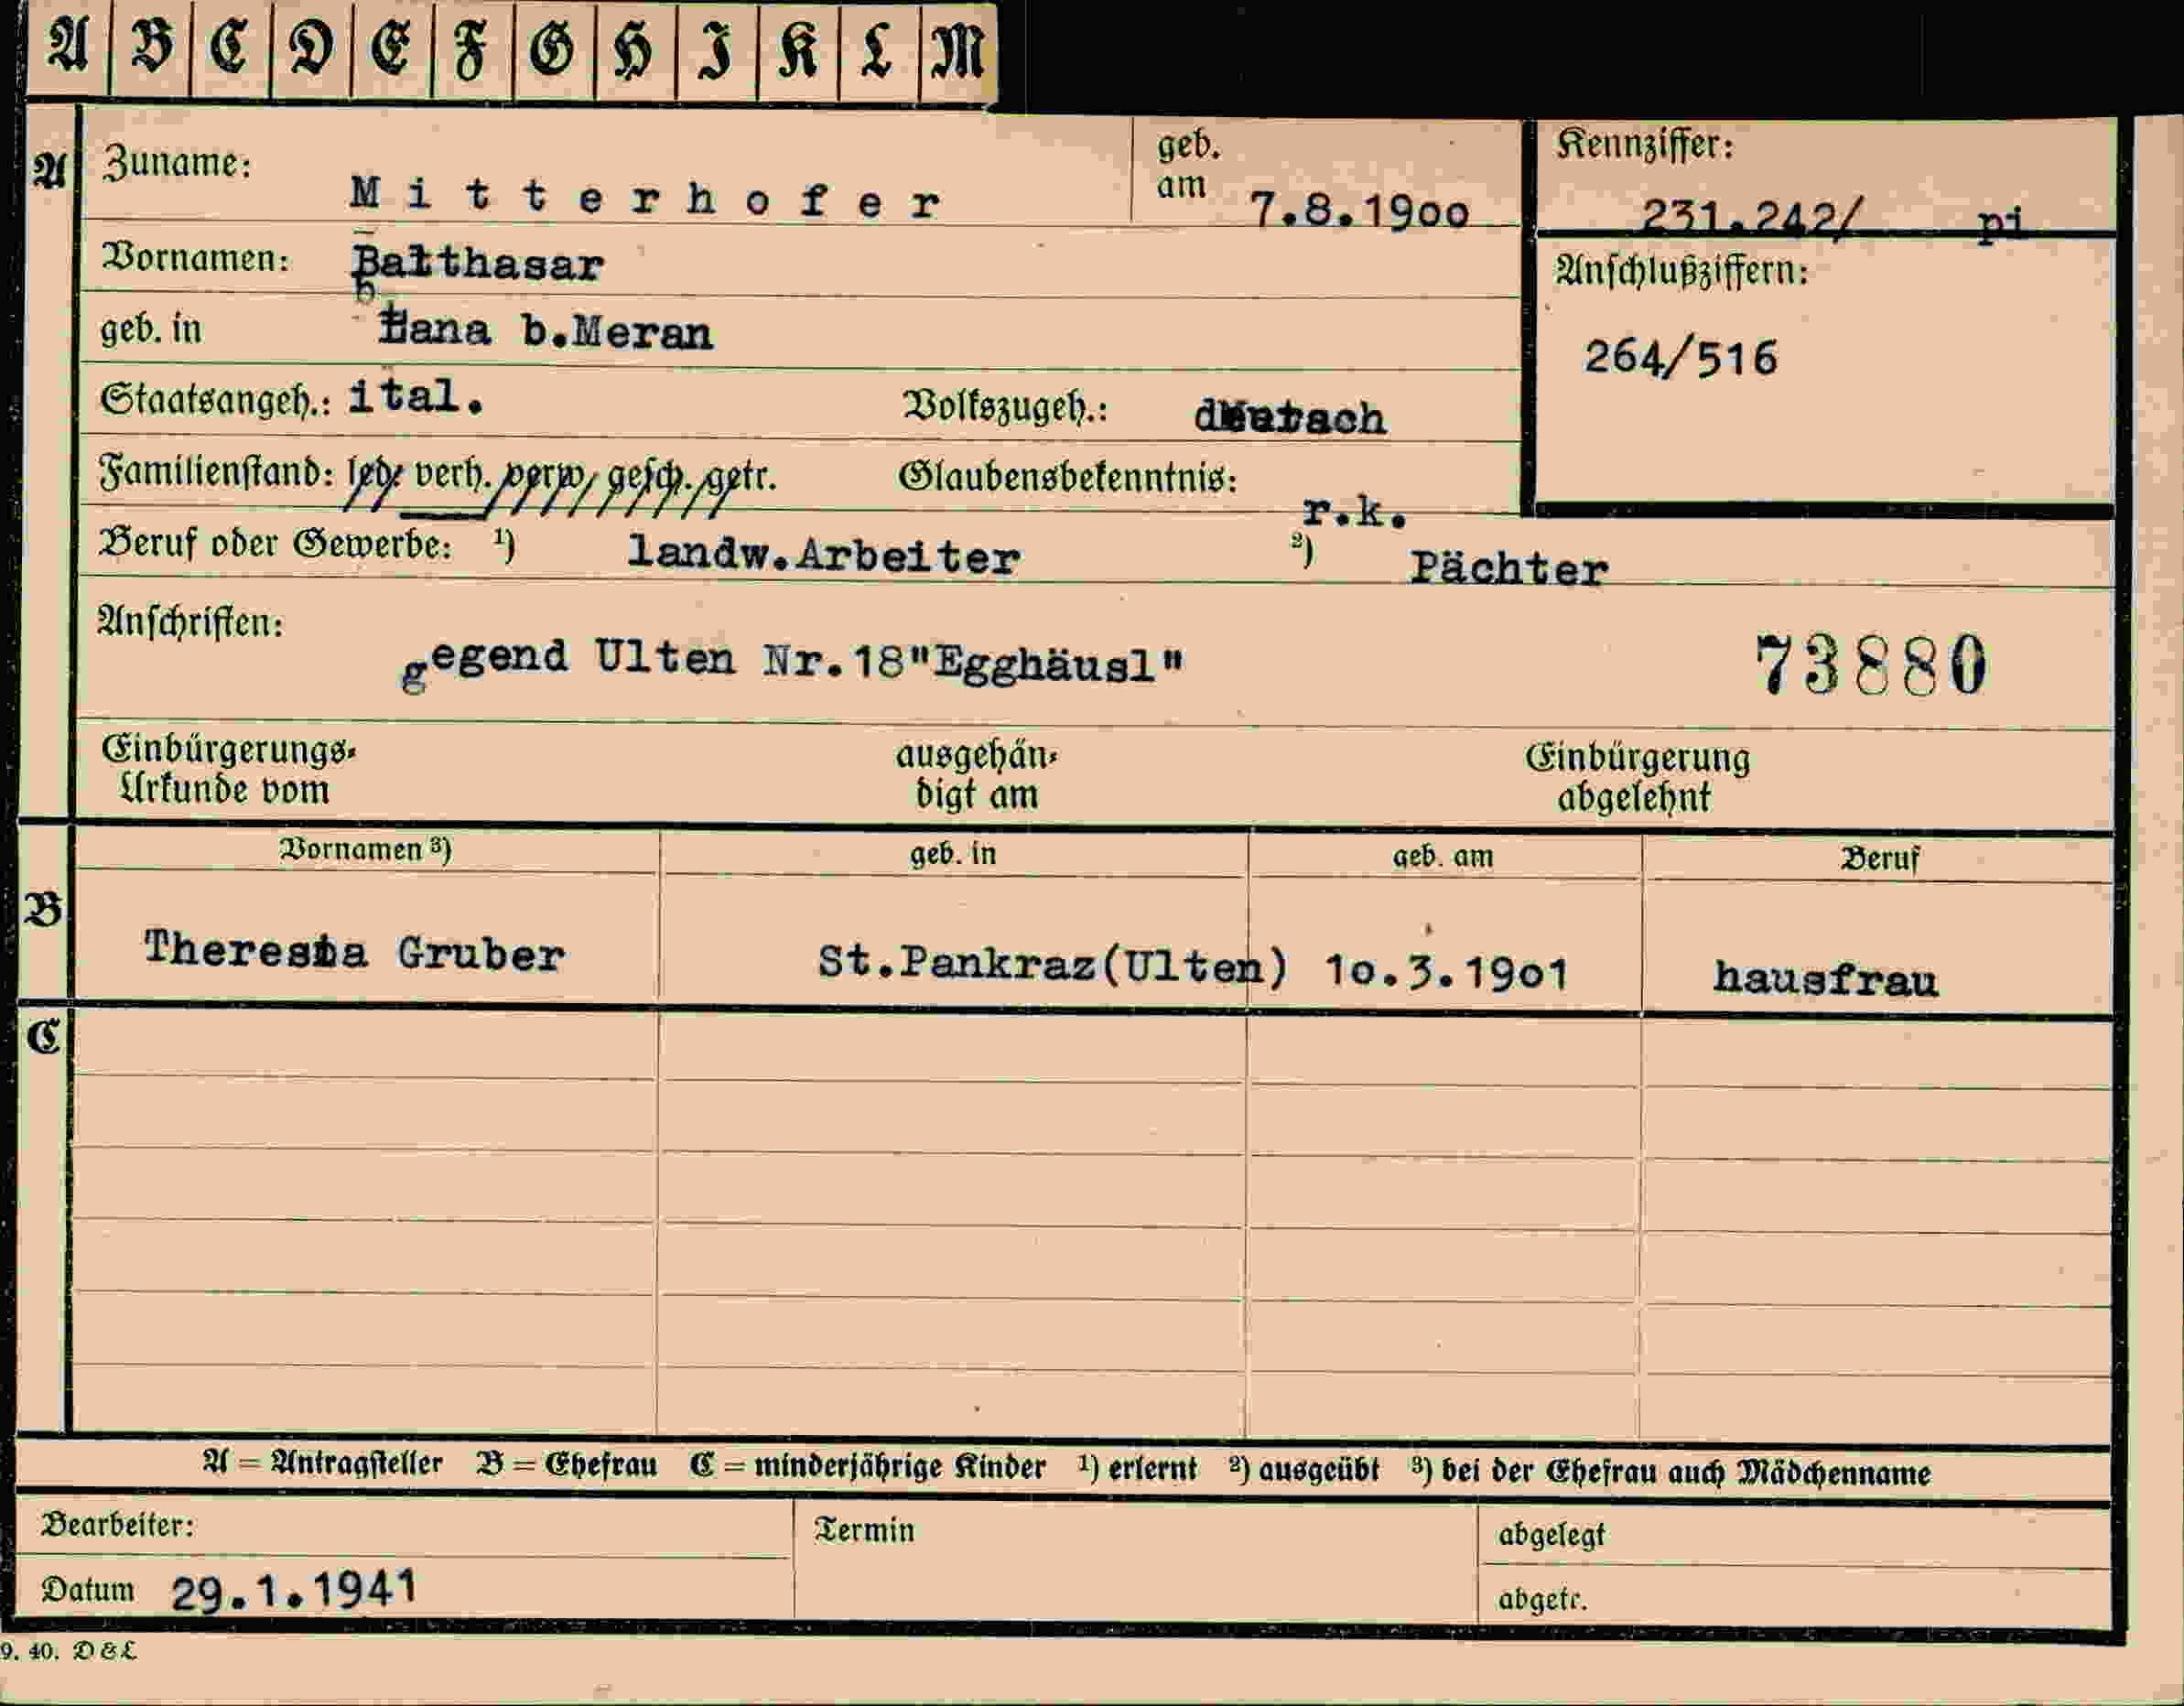 A B C D E F G H I K L M
A Zuname: Mitterhofer geb. am 7.8.1900 Kennziffer: 231.242/ pi
Vornamen: Balthasar Anschlußziffern:
geb. in Lana b.Meran 264/516
Staatsangeh.: ital. Volkszugeh.: deutsch
Familienstand: led. verh. verw. gesch. getr. Glaubensbekenntnis: r.k.
Beruf oder Gewerbe: 1) landw.Arbeiter 2) Pächter
Anschriften: gegend Ulten Nr.18"Egghäusl" 73880
Einbürgerungs- ausgehän- Einbürgerung
Urkunde vom digt am abgelehnt
Vornamen 3) geb. in geb. am Beruf
B Theresia Gruber St.Pankraz(Ulten) 10.3.1901 hausfrau
C
A = Antragsteller B = Ehefrau C = minderjährige Kinder 1) erlernt 2) ausgeübt 3) bei der Ehefrau auch Mädchenname
Bearbeiter: Termin abgelegt
Datum 29.1.1941 abgetr.
9. 40. D&L